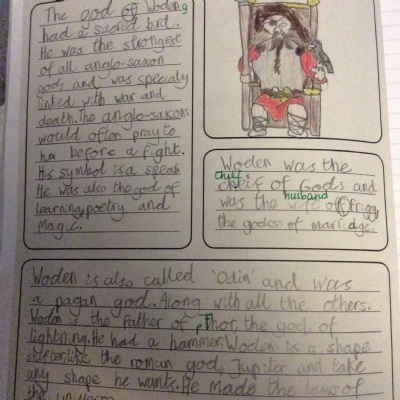 The god of Woden
had a sacred bird.
He was the strongest
of all anglo-saxon
gods and was specaly
linked with war and
death. The anglo-saxons
would often pray to
him before a fight.
His symbol is a spear
He was also the god of
learning, poetry and
magic.
Woden was the
chief
cheif of Gods and
husband
was the wife of Frigg,
the godess of marridge.
Woden is also called 'Odin' and was
a pagan god. Along with all the others.
Woden is the father of Thor, the god of
lightning. He had a hammer. Woden is a shape
shifter, like the roman god, Jupiter and take
any shape he wants. He made the laws of
the universe